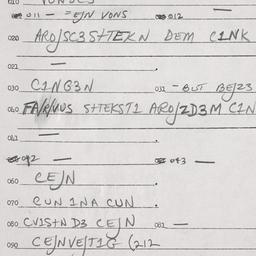 010
011 — EJN VONS 012
020 ARO/SC3 S+TEKN DEM C1NK
021 —
030 C1NG3N 031 - BUT BE/Z3
040 S+TEKST1 ARO/ZD3M C1N
041 —
042 — 043 —
060 CEJN
070 CUN 1NA CUN
080 CV1S+N D3 CEJN 081 —
090 CE/NVE/T1G (212